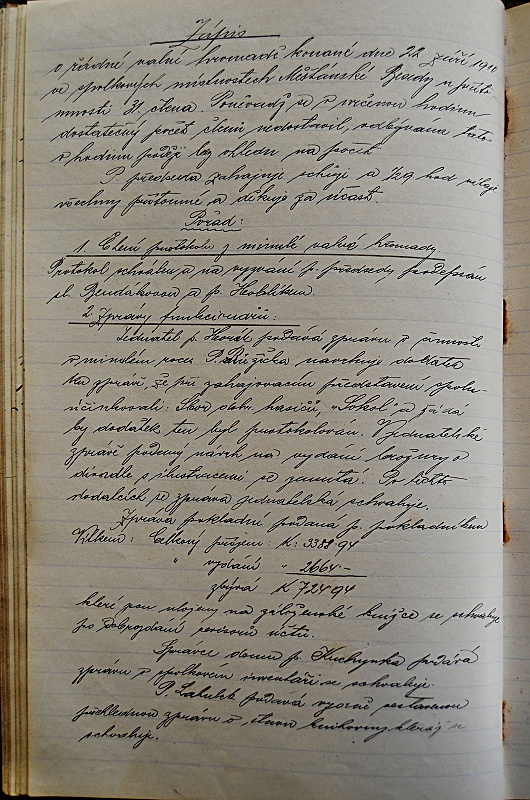 Zápis
o řádné valné hromadě konané dne 22. září 1910
ve spolkových místnostech Měšťanské Besedy u příto-
mnosti 31 člena. Poněvadž se v určenou hodinu
dostatečný počet členů nedostavil, odbývána tato
o hodinu později bez ohledu na počet.
P. předseda zahajuje schůzi o ½9 hod vítaje
všechny přítomné a děkuje za účast.
Pořad:
1. Čtení protokolu z minulé valné hromady.
Protokol schválen a na vyzvání p. předsedy podepsán
sl. Bendákovou a p. Hoblíkem.
2. Zprávy funkcionářů:
Jednatel p. Horák podává zprávu o činnosti
v minulém roce. P. Růžička navrhuje dodatek
ku zprávě, že při zahajovacím představení spolu-
účinkovali: Sbor dobr. hasičů, "Sokol" a žádá
by dodatek ten byl protokolován. V jednatelské
zprávě podaný návrh na vydání brožury o
divadle s ilustracemi se zamítá. Po těchto
dodatcích se zpráva jednatelská schvaluje.
Zpráva pokladní podaná p. pokladníkem
Vlkem: Celkový příjem: K: 3388.94
" vydání " 2664.-
zbývá K 724.94
které jsou uloženy na záloženské knížce se schvaluje
po dobrozdání revisorů účtů.
Správce domu p. Kuchynka podává
zprávu o spolkovém inventáři se schvaluje.
P. Latulek podává vzorně sestavenou
přehlednou zprávu o stavu knihovny kteráž se
schvaluje.